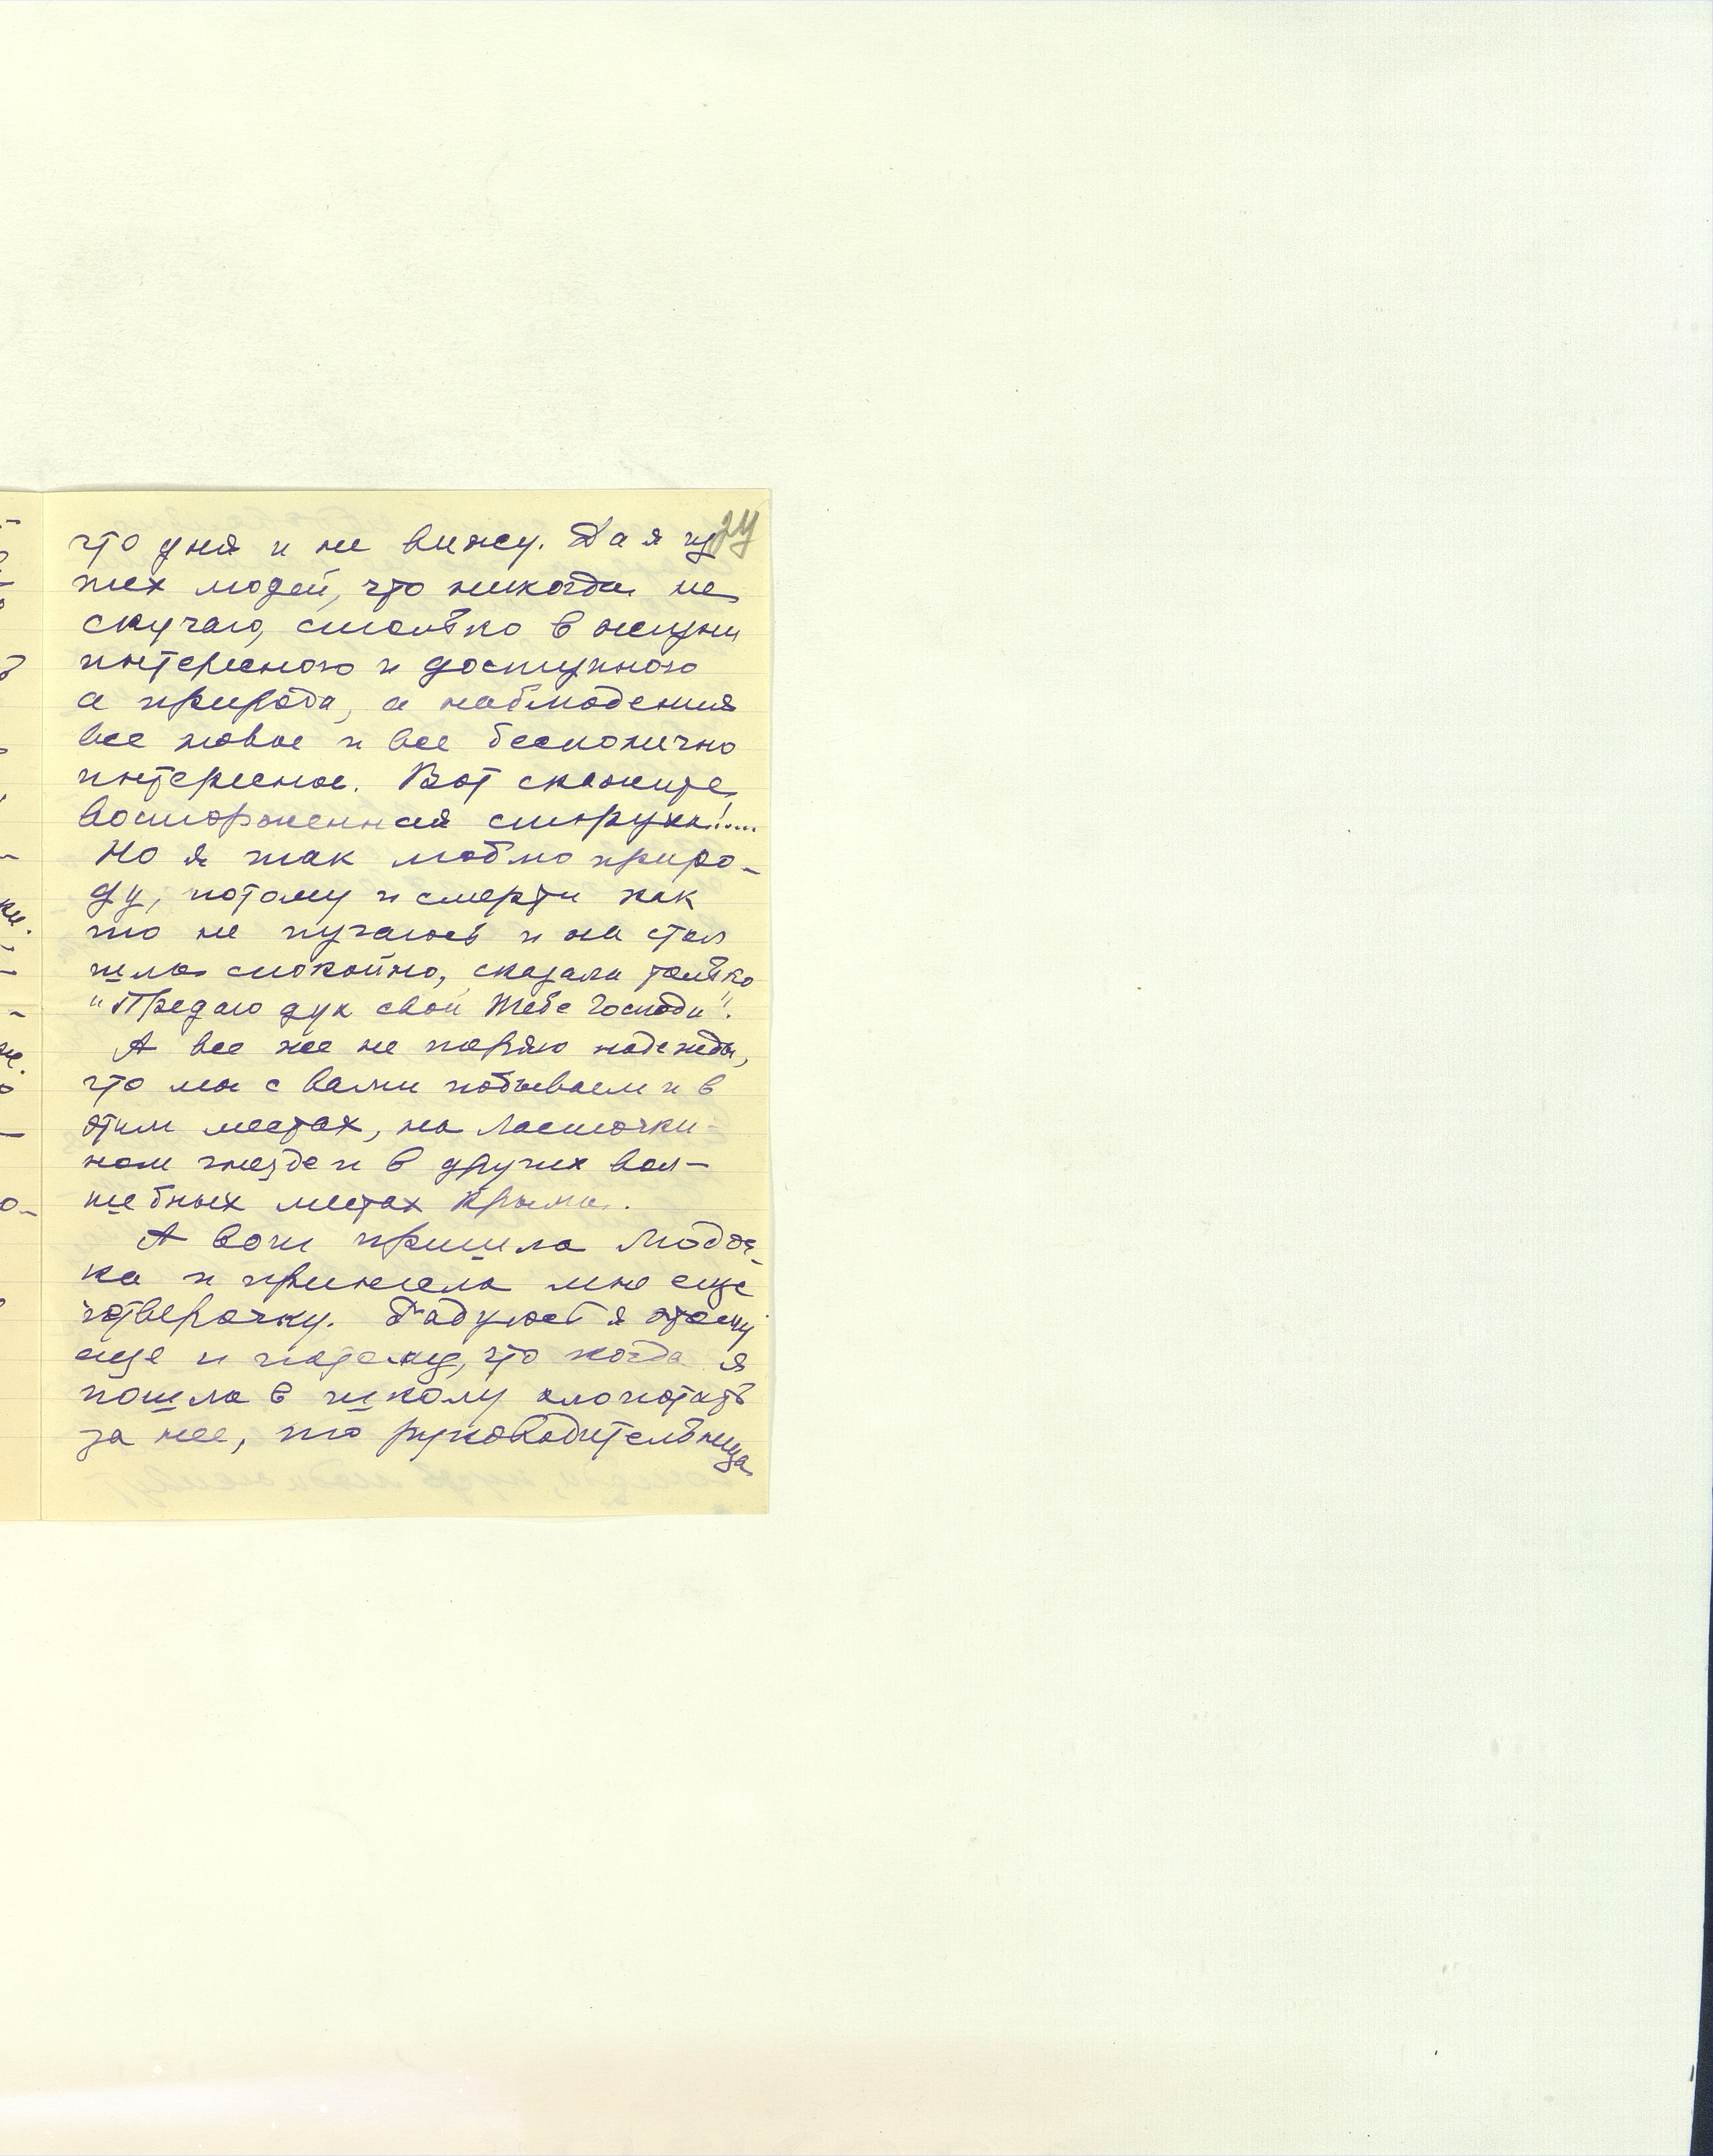 24
что дня и не вижу. Да я из
тех людей, что никогда не
скучаю, столько в жизни
интересного и доступного
а природа, а наблюдения
все новое и все бесконечно
интересное. Вот скажите
восторженная старуха!....
Но я так люблю приро-
ду, потому и смерти как
то не пугаюсь и на стол
шла спокойно, сказала только
"Предаю дух свой Тебе Господи".
А все же не теряю надежды,
что мы с вами побываем и в
этих местах, на Ласточки-
ном гнезде и в других вол-
шебных местах Крыма.
А вот пришла Любоч-
ка и принесла мне еще
четверочку. Радуюсь я этому
еще и потому, что когда я
пошла в школу хлопотать
за нее, то руководительница